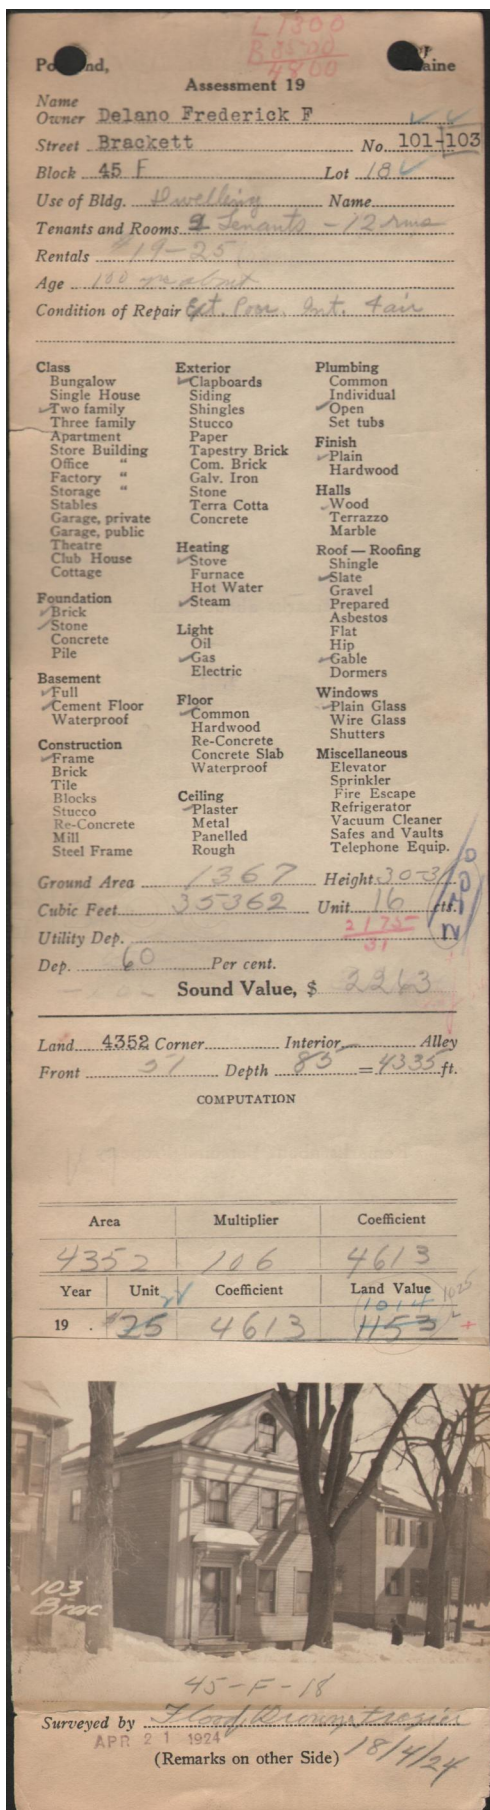 L 1300
B 3500
4800
Po nd, aine
Assessment 19
Name
Owner Delano Frederick F
Street Brackett No. 101-103
Block 45 F Lot 18
Use of Bldg. Dwelling Name
Tenants and Rooms 2 Tenants - 12 rms
Rentals $19-25
Age 100 yrs about
Condition of Repair Ext. Poor. Int. Fair
Class
Bungalow
Single House
Two family
Three family
Apartment
Store Building
Office "
Factory "
Storage "
Stables
Garage, private
Garage, public
Theatre
Club House
Cottage
Foundation
Brick
Stone
Concrete
Pile
Basement
Full
Cement Floor
Waterproof
Construction
Frame
Brick
Tile
Blocks
Stucco
Re-Concrete
Mill
Steel Frame
Exterior
Clapboards
Siding
Shingles
Stucco
Paper
Tapestry Brick
Com. Brick
Galv. Iron
Stone
Terra Cotta
Concrete
Heating
Stove
Furnace
Hot Water
Steam
Light
Oil
Gas
Electric
Floor
Common
Hardwood
Re-Concrete
Concrete Slab
Waterproof
Ceiling
Plaster
Metal
Panelled
Rough
Plumbing
Common
Individual
Open
Set tubs
Finish
Plain
Hardwood
Halls
Wood
Terrazzo
Marble
Roof — Roofing
Shingle
Slate
Gravel
Prepared
Asbestos
Flat
Hip
Gable
Dormers
Windows
Plain Glass
Wire Glass
Shutters
Miscellaneous
Elevator
Sprinkler
Fire Escape
Refrigerator
Vacuum Cleaner
Safes and Vaults
Telephone Equip.
Ground Area 1367 Height 30-3
Cubic Feet 35362 Unit 16 cts.
Utility Dep. 2175
31
Dep. 60 Per cent.
Sound Value, $ 2263
Land 4352 Corner Interior Alley
Front 51 Depth 85 = 4335 ft.
COMPUTATION
Area Multiplier Coefficient
4352 106 4613
Year Unit Coefficient Land Value
1025
1014
19 . $25 4613 1153
103
Brac
45-F-18
Surveyed by Flood, Brown, Frazier
APR 21 1924
(Remarks on other Side) 18/4/24